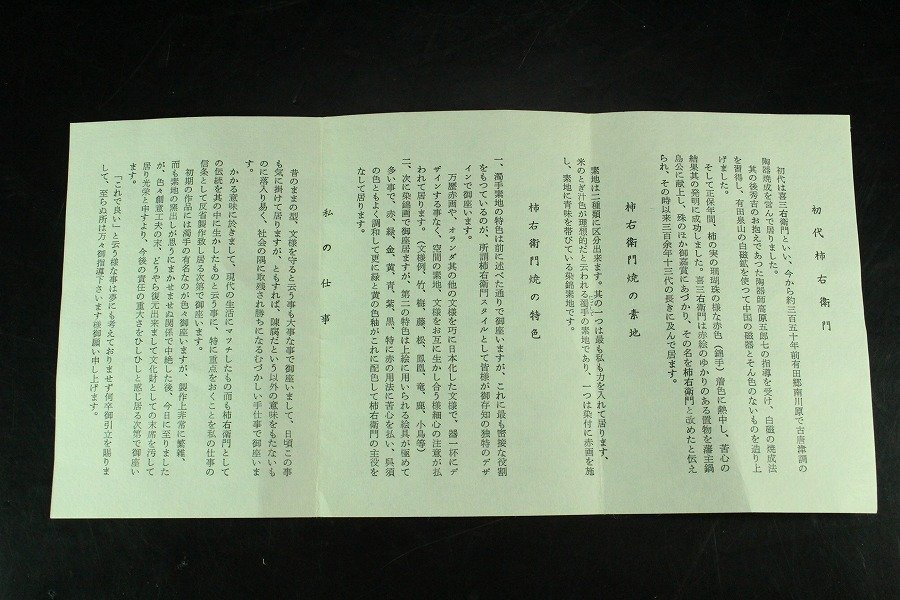 初代柿右衛門
初代は喜三右衛門といい、今から約三百五十年前有田郷南川原で古唐津調の
陶器焼成を営んで居りました。
其の後秀吉のお抱えであつた陶器師高原五郎七の指導を受け、白磁の焼成法
を習得し、有田泉山の白磁鉱を使つて中国の磁器とそん色のないものを造り上
げました。
そして正保年間、柿の実の珊瑚珠の様な赤色(錦手)着色に熱中し、苦心の
結果其の発明に成功しました。喜三右衛門は赤絵のゆかりのある置物を藩主鍋
島公に献上し、殊のほか御嘉賞にあづかり、その名を柿右衛門と改めたと伝え
られ、その時以来三百余年十三代の長きに及んで居ます。
柿右衛門焼の素地
素地は二種類に区分出来ます。其の一つは最も私も力を入れて居ります、
米のとぎ汁色が理想的だと云われる濁手の素地であり、一つは染付に赤画を施
し、素地に青味を帯びている染錦素地です。
柿右衛門焼の特色
一、濁手素地の特色は前に述べた通りで御座いますが、これに最も密接な役割
をもつているのが、所謂柿右衛門スタイルとして皆様が御存知の独特のデザ
インで御座います。
万歴赤画や、オランダ其の他の文様を巧に日本化した文様で、器一杯にデ
ザインする事なく、空間の素地、文様をお互に生かし合う様細心の注意が払
われて居ります。(文様例、竹、梅、藤、松、鳳凰、竜、鹿、小鳥等)
二、次に染錦画で御座居ますが、第二の特色は上絵に用いられる絵具が極めて
多い事で、赤、緑、金、黄、青、紫、黒、特に赤の用法に苦心を払い、呉須
の色ともよく調和して更に緑と黄の色釉がこれに配色して柿右衛門の主役を
なして居ります。
私の仕事
昔のままの型、文様を守ると云う事も大事な事で御座いまして、日頃この事
も気に掛けて居りますが、ともすれば、陳腐だという以外の意味をもたないも
のに落入り易く、社会の隅に取残され勝ちになるむづかしい手仕事で御座いま
す。
かかる意味に於きまして、現代の生活にマツチしたもの而も柿右衛門として
の伝統を其の中に生かしたものと云う事に、特に重点をおくことを私の仕事の
信条として反省製作致し居る次第で御座います。
初期の作品には濁手の有名なのが色々御座いますが、製作上非常に繁雑、
而も素地の窯出しが思うにまかせませぬ関係で中絶した後、今日に至りました
が、色々創意工夫の末、どうやら復元出来まして文化財としての末席を汚して
居り光栄と申すより、今後の責任の重大さをひしひしと感じ居る次第で御座い
ます。
「これで良い」と云う様な事は夢にも考えておりませず何卒御引立を賜りま
して、至らぬ所は万々御指導下さいます様御願い申し上げます。